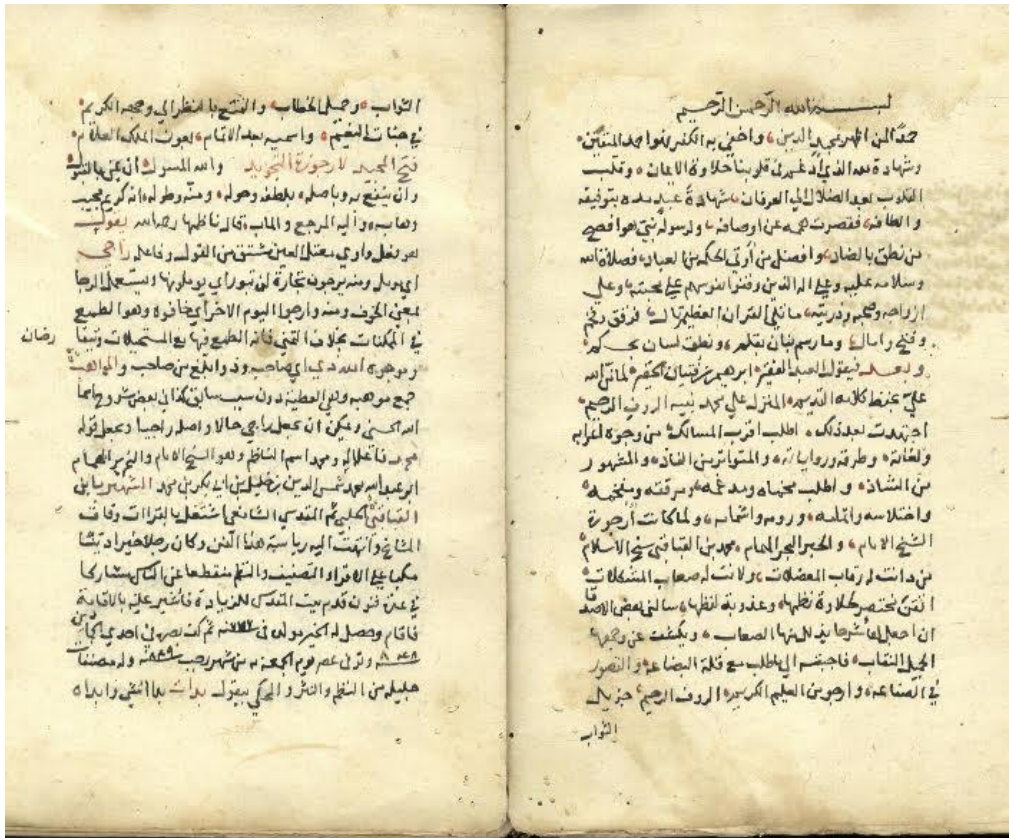 بسم الله الرحمن الرحيم
حمدا لمن اظهر الدين، واخفي به الكفر
وشهادة لله الذي ادغم في قلوبنا حلاوة الايمان، وقلب
القلوب بعد الضلال الي العرفان، شهادة عبد بتوفيقه
والطافه، فقصرت همه عن اوصافه، ولرسوله نبي هو افصح
من نطق بالضاد، وافضل من اوتي الحكم من العباد، فصلاة الله
وسلامه عليه وعلي اله الذين وقفوا نفوسهم علي محبته، وعلي
ازواجه وصحبه وذريته، ما تلي القران العظيم فرقق وفخم
وفتح وامال، وما رسم بنان بقلم، ونطق لسان
وبعد فيقول العبد الفقير ابرهيم لما من الله
علي بحفظ كلامه القديم، المنزل علي محمد نبيه الروف الرحيم،
اجتهدت بعد ذلك، اطلب اقرب المسالك، من وجوه اعرابه
ولغاته، وطرقه ورواياته، والمتواتر من الفاذ، والمشهور
من الشاذ، واطلب مدغمه، ومرققه ومفخمه،
واختلاسه واتمامه، ورومه واشمامه، ولما كانت ارجوزة
الشيخ الامام، والحبر البحر الهمام، محمد بن القباقبي شيخ الاسلام
من دانت له رقاب المعضلات، ولانت له صعاب المشكلات،
نظمها، وعذوبة لفظها، سالني بعض الاصدقا
ان اجعل لها شرحا يذلل منها الصعاب، ويكشف عن وجهها
الجميل النقاب، فاجبته الي ما طلب مع قلة البضاعه، والقصور
في الصناعه، وارجو من العليم الكريم، الروف الرحيم، جزيل
الثواب
الثواب، وجميل الخطاب، والتمتع بالنظر الي وجهه الكريم،
في جنات النعيم، واسميه بعد الاتمام، بعون الملك العلام،
فتح المجيد لارجوزة التجويد والله المسول، ان يمن بالقبول
وان ينفع به وباصله، بلطفه وحوله، ومنه وطوله، انه كريم مجيب
وهاب، واليه المرجع والماب، قال ناظمها رحمه الله يقول
هو فعل واوي معتل العين مشتق من القول وفاعله راجي
اي مومل ومنه يرجون تجارة لن تبور اي يوملونها ويستعمل الرجا
لمعني الخوف ومنه وارجوا اليوم الاخر اي خافوه وهو الطمع
في الممكنات بخلاف التمني فانه الطمع فيها مع المستحيلات
رضان
الله ذي اي صاحب وذو ابلغ من صاحب والمواهب
جمع موهبه وهي العطيه دون سبب سابق كذا في بعض شروح اسما
الله الحسني ويمكن ان يجعل راجي حالا واصله راجيا ويجعل قوله
محمد فاعلا له ومحمد اسم الناظم وهو الشيخ الامام والحبر الهمام
ابو عبد الله محمد شمس الدين بن خليل بن ابي بكر بن محمد الشهير بابن
القباقبي الحلبي ثم المقدسي الشافعي اشتغل بالقراات وفاق
المشايخ وانتهت اليه رياسة هذا الفن وكان رجلا خيرا دينا
مكبا علي الاقراء والتصنيف والنظم منقطعا عن الناس مشاركا
في عدة فنون قدم بيت المقدس للزيارة فاشير عليه بالاقامة
فاقام وحصل له الخير مولده في ٧٧٧
وتوفي عصر يوم الجمعه من شهر رجب ٨٤٩ وله مصنفات
جليله من النظم والنثر والمحكي بيقول بدات